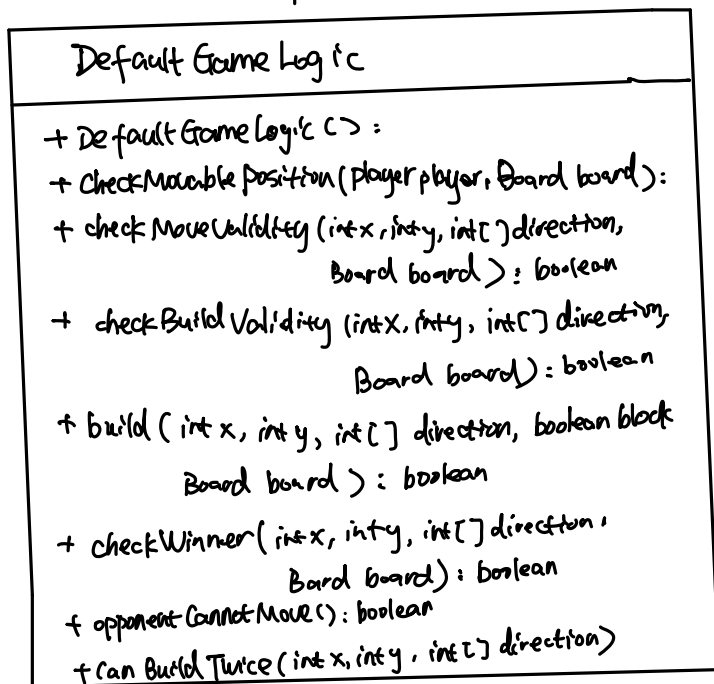 Default Game Logic
+ DefaultGameLogic():
+ CheckMovablePosition(player player, Board board):
+ checkMoveValidity (int x, int y, int[] direction,
Board board): boolean
+ checkBuildValidity (int x, int y, int[] direction,
Board board): boolean
+ build (int x, int y, int[] direction, boolean block
Board board): boolean
+ checkWinner(int x, int y, int[] direction,
Board board): boolean
+ opponentCannotMove(): boolean
+ can Build Twice (int x, int y, int[] direction)